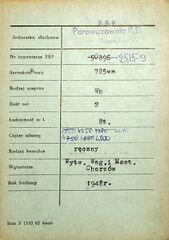 Jednostka służbowa
Parowozownia K.D.
Nr inwentarza PKP
Szerokość toru 785mm
Rodzaj wagonu Wh
Ilość osi 2
Ładowność w t. 8t.
Ciężar własny
Rodzaj hamulca ręczny
Wytwórnia Wytw. Wag. i Most. Chorzów
Rok budowy 1948r.